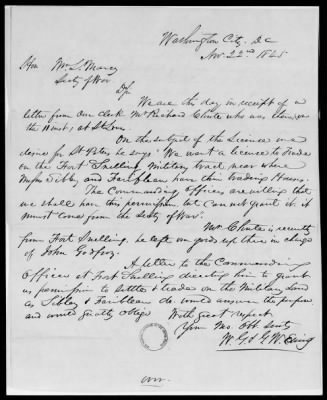 Washington City, D.C
Nov. 22nd 1845
Hon Wm L. Marcy
Secty of War
Sir
We are this day in receipt of a
letter from our clerk Mr Richard Chute who was
the inst, at St Louis.
On the subject of the License we
desire for St Peters he says "We want a license to Trade
on the Fort Snelling Military tract near where
Messrs Sibley and Faribleau have their trading Houses.
The Commanding Officer are willing that
we shall have this permission, but can not grant it. it
must come from the Secty of War.
Mr Chute is recently
from Fort Snelling, he left our goods up there in charge
of John Godfroy.
A letter to the Commanding
Officer at Fort Snelling directing him to grant
us permission to settle & trade on the Military Land
as Sibley & Faribleau do. would answer the purpose
and would greatly oblige
With great respect
Your Mo. Obt Servts
W. G. & G. W. Ewing